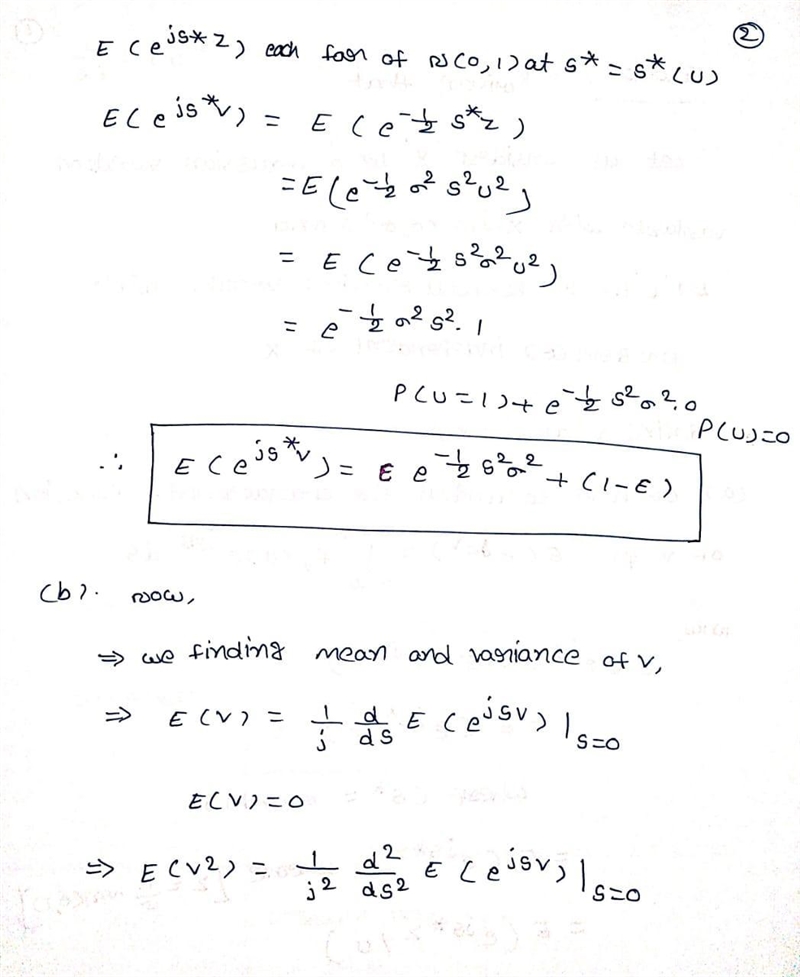 ②
E(e^{js*z}) each for of N(0,1) at s* = s*(U)
E(e^{js*v}) = E(e^{-1/2 s*z})
= E(e^{-1/2 σ² s² u²})
= E(e^{-1/2 s² σ² u²})
= e^{-1/2 σ² s²}. 1
P(U=1) + e^{-1/2 s² σ². 0}
P(U)=0
∴ E(e^{js*v}) = ε e^{-1/2 s² σ²} + (1-ε)
(b). Now,
⇒ we finding mean and variance of v,
⇒ E(v) = 1/j d/ds E(e^{jsv})|_{s=0}
E(v)=0
⇒ E(v2) = 1/j² d²/ds² E(e^{jsv})|_{s=0}